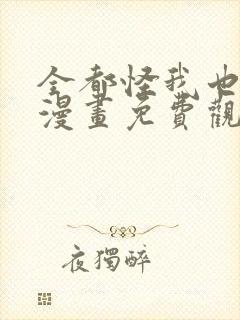 全都怪我也
漫畫免費觀
夜獨醉